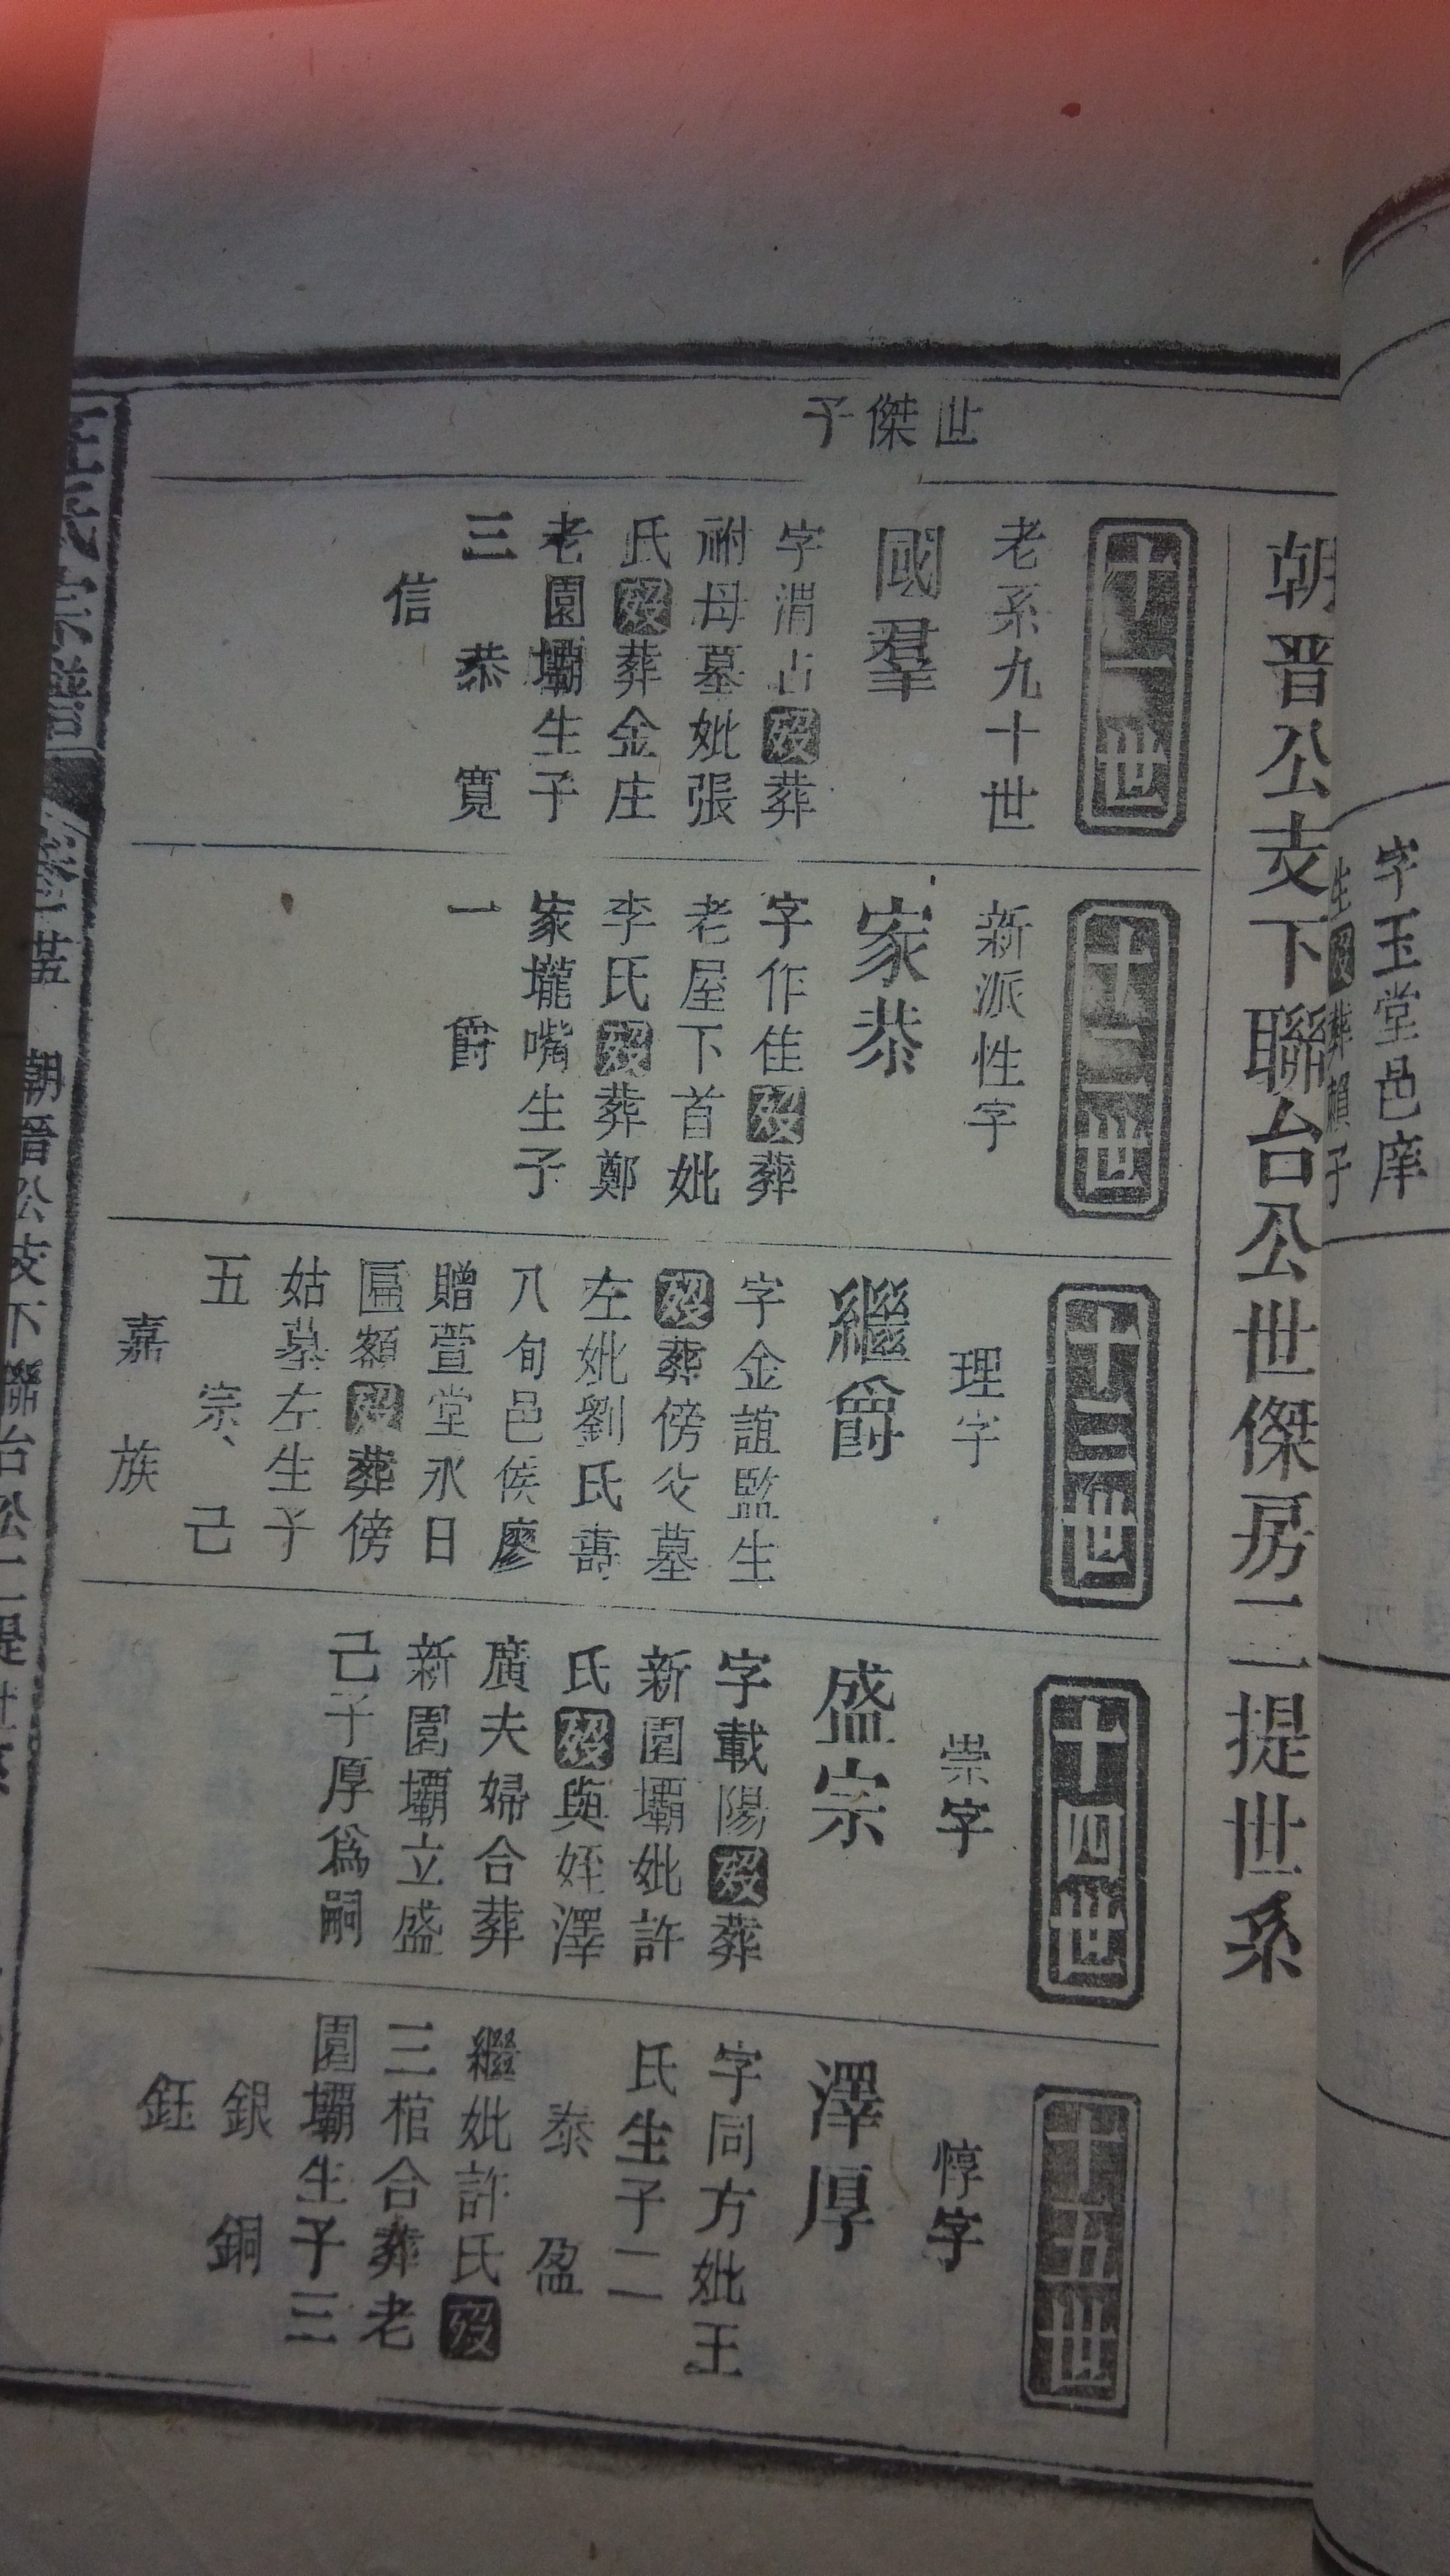 字玉堂邑庠
朝晋公支下聯台公世傑房二提世系
世傑子
十一世
老系九十世
國羣
字渭占歿葬
祔母墓妣張
氏歿葬金庄
老園壩生子
三 恭 寬
信
十二世
新派性字
家恭
字作佳歿葬
老屋下首妣
李氏歿葬鄭
家壠嘴生子
一 爵
十三世
理字
繼爵
字金誼監生
歿葬傍父墓
左妣劉氏壽
八旬邑侯廖
贈萱堂永日
匾額歿葬傍
姑墓左生子
五 宗 己
嘉 族
十四世
崇字
盛宗
字載陽歿葬
新園壩妣許
氏歿與姪澤
廣夫婦合葬
新園壩立盛
己子厚爲嗣
十五世
惇字
澤厚
字同方妣王
氏生子二
泰 盈
繼妣許氏歿
三棺合葬老
園壩生子三
銀 銅
鈺
朝晋公支下聯台公二提世系